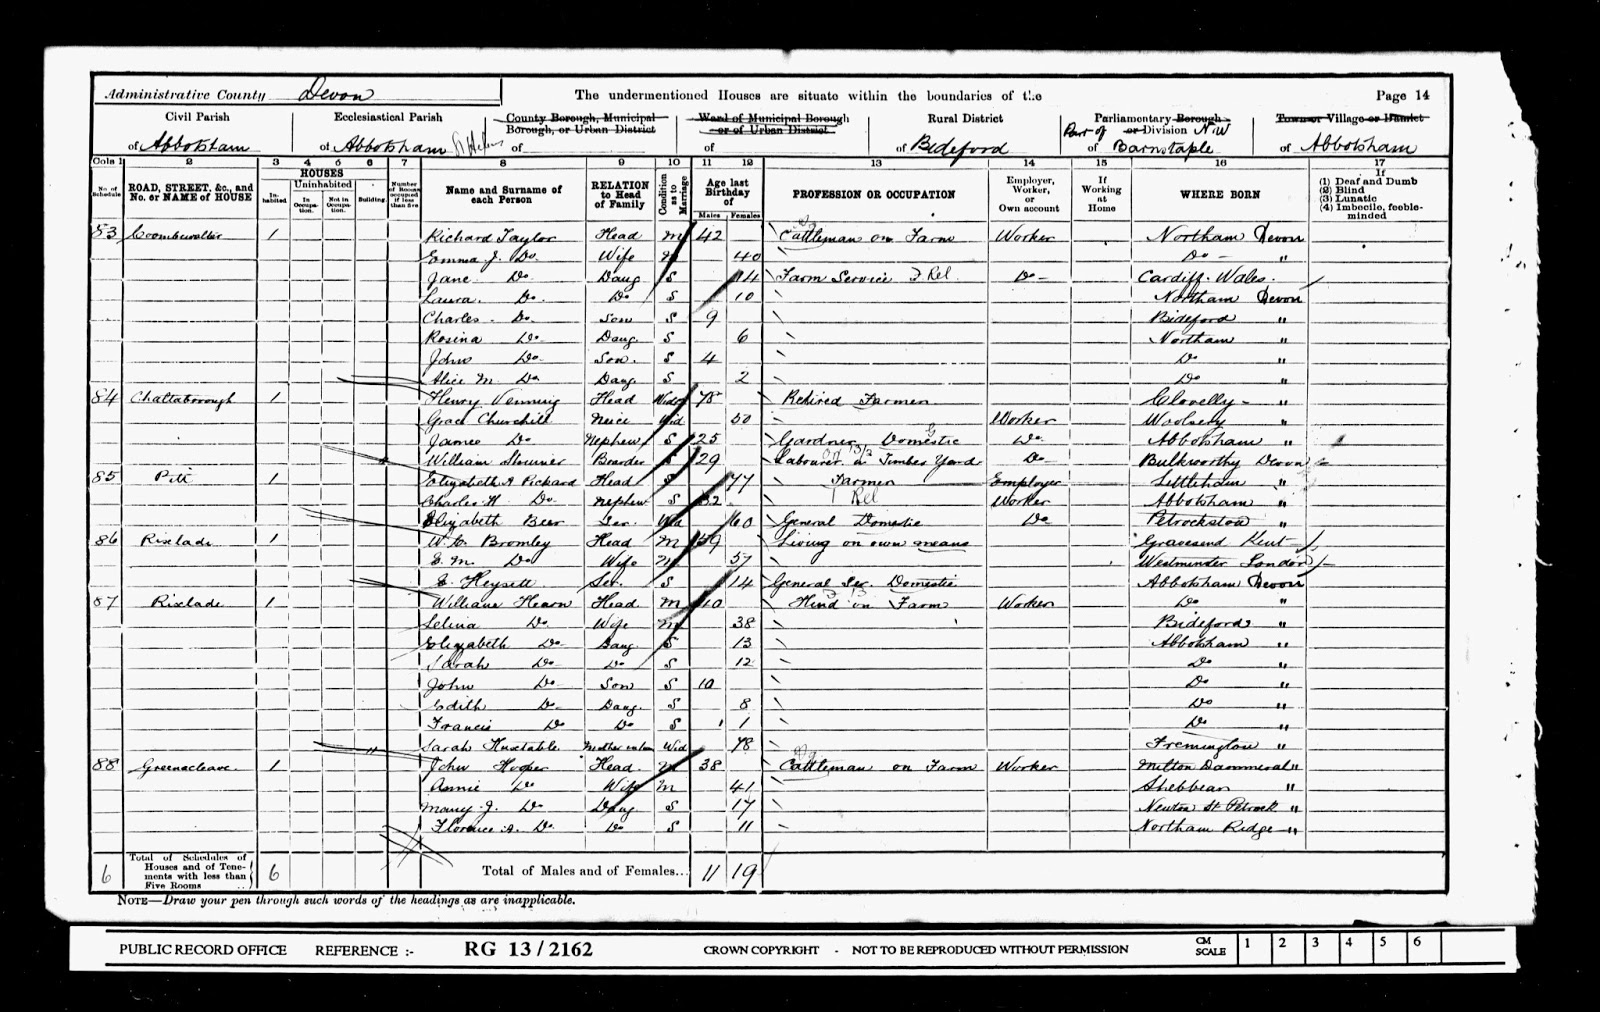 Administrative County Devon
The undermentioned Houses are situate within the boundaries of the
Page 14
Civil Parish
of Abbotsham
Ecclesiastical Parish
of Abbotsham St Helens
County Borough, Municipal Borough, or Urban District
of
Ward of Municipal Borough or of Urban District
of
Rural District
of Bideford
Parliamentary Borough or Division
Part of N.W
of Barnstaple
Town or Village or Hamlet
of Abbotsham
Cols 1 2 3 4 5 6 7 8 9 10 11 12 13 14 15 16 17
No. of Schedule
ROAD, STREET, &c., and No. or NAME of HOUSE
HOUSES
Inhabited
Uninhabited
In Occupation.
Not in Occupation.
Building.
Number of Rooms occupied if less than five
Name and Surname of each Person
RELATION to Head of Family
Condition as to Marriage
Age last Birthday of
Males Females
PROFESSION OR OCCUPATION
Employer, Worker, or Own account
If Working at Home
WHERE BORN
If
(1) Deaf and Dumb
(2) Blind
(3) Lunatic
(4) Imbecile, feeble-minded
83 1 Richard Taylor Head M 42 Cattleman on Farm Worker Northam Devon
Emma J. Do Wife M 40 Do "
Jane Do Daug S 14 Farm Service Do Cardiff. Wales.
Laura. Do. Do S 10 Northam Devon
Charles Do. Son S 9 Bideford "
Rosina Do Daug S 6 Northam "
John Do Son. S 4 Do "
Alice M. Do Daug. S 2 Do "
84 Chattaborough 1 Henry Venning Head Widr 78 Retired Farmer Clovelly "
Grace Churchill Neice Wid 50 Worker Woolsery "
James Do Nephew S 25 Gardner Domestic Do Abbotsham "
William Boarder S 29 Labourer in Timber Yard Do Bulkworthy Devon
85 Pitt 1 Elizabeth A Pickard Head S 77 Farmer Employer Littleham "
Charles H. Do Nephew S 32 Rel Worker Abbotsham "
Elizabeth Beer Ser. Wid 60 General Domestic Do Petrockstow "
86 Rixlade 1 Bromley Head M 59 Living on own means Gravesend Kent
E. M. Do Wife M 57 Westminster London
E Heysett Ser. S 14 General Ser. Domestic Abbotsham Devon
87 Rixlade 1 William Hearn Head M 40 Hind on Farm Worker Do "
Selina Do Wife M 38 Bideford "
Elizabeth Do Daug S 13 Abbotsham "
Sarah Do Do S 12 Do "
John Do Son S 10 Do "
Edith Do Daug. S 8 Do "
Francis Do Do S 1 Do "
Sarah Huxtable Mother in law Wid 78 Fremington "
88 Greenacleave 1 John Hooper Head M 38 Cattleman on Farm Worker Milton Dammeral "
Annie Do Wife M 41 Shebbear "
Mary J. Do Daug S 17 Newton St Petrock "
Florence A. Do. Do S 11 Northam Ridge "
6 Total of Schedules of Houses and of Tenements with less than Five Rooms 6 Total of Males and of Females... 11 19
NOTE—Draw your pen through such words of the headings as are inapplicable.
PUBLIC RECORD OFFICE REFERENCE :- RG 13 / 2162 CROWN COPYRIGHT - NOT TO BE REPRODUCED WITHOUT PERMISSION CM SCALE 1 2 3 4 5 6